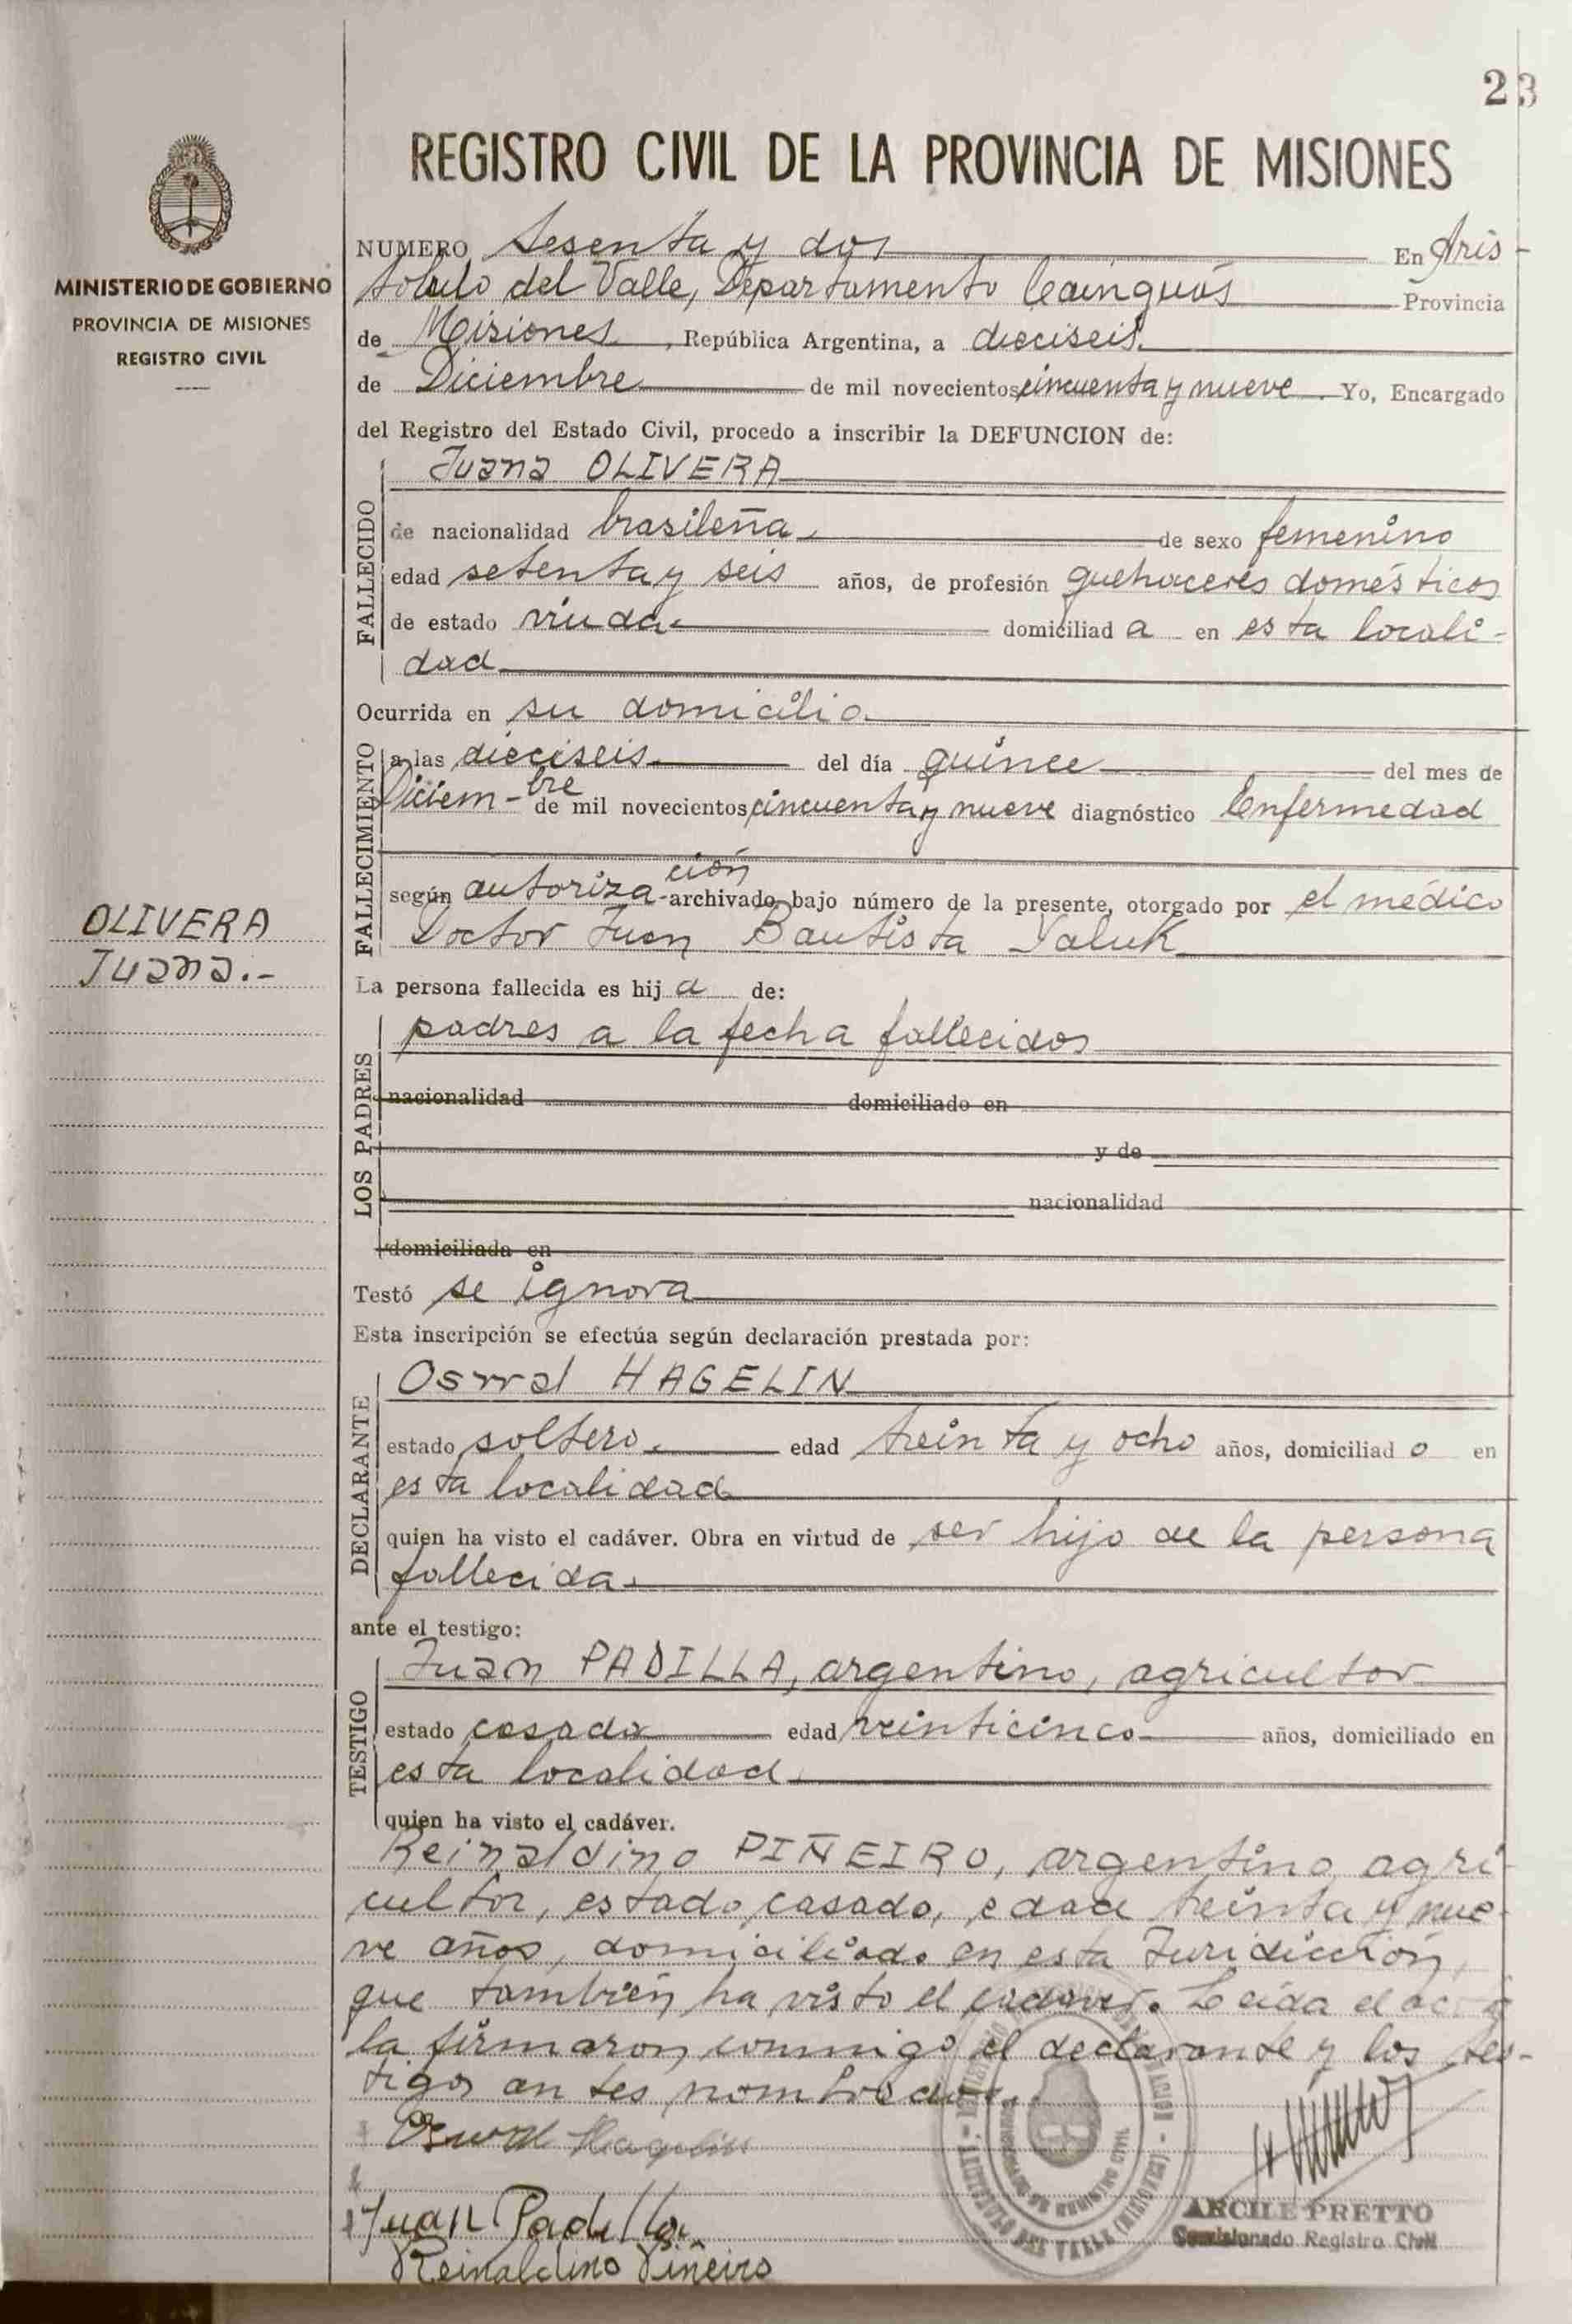 23
REGISTRO CIVIL DE LA PROVINCIA DE MISIONES
MINISTERIO DE GOBIERNO
PROVINCIA DE MISIONES
REGISTRO CIVIL
NUMERO Sesenta y dos En Aris-
tobulo del Valle, Departamento Cainguás Provincia
de Misiones, República Argentina, a dieciseis
de Diciembre de mil novecientos cincuenta y nueve. Yo, Encargado
del Registro del Estado Civil, procedo a inscribir la DEFUNCION de:
FALLECIDO
Juana OLIVERA
de nacionalidad brasileña de sexo femenino
edad setenta y seis años, de profesión quehaceres domésticos
de estado viuda domiciliad a en esta locali-
dad
Ocurrida en su domicilio
FALLECIMIENTO
a las dieciseis del día quince del mes de
Diciem-bre de mil novecientos cincuenta y nueve diagnóstico Enfermedad
según autoriza-ción archivado bajo número de la presente, otorgado por el médico
Doctor Juan Bautista Yaluk
OLIVERA
Juana.-
La persona fallecida es hij a de:
LOS PADRES
padres a la fecha fallecidos
nacionalidad domiciliado en
y de
nacionalidad
domiciliada en
Testó se ignora
Esta inscripción se efectúa según declaración prestada por:
DECLARANTE
HAGELIN
estado soltero edad treinta y ocho años, domiciliad o en
esta localidad
quien ha visto el cadáver. Obra en virtud de ser hijo de la persona
fallecida
ante el testigo:
TESTIGO
Juan PADILLA, argentino, agricultor
estado casado edad veinticinco años, domiciliado en
esta localidad
quien ha visto el cadáver.
Reinaldino PIÑEIRO, argentino, agri-
cultor, estado casado, edad treinta y nue-
ve años, domiciliado en esta Juridicción,
que también ha visto el cadaver. Leida el acta
la firmaron conmigo el declarante y los tes-
tigos antes nombrados.
Hagelin
Juan Padilla
Reinaldino Piñeiro
ARCILE PRETTO
Comisionado Registro Civil